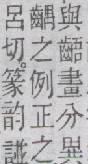 與齬畫分異
齵之例正之
呂切。篆韵